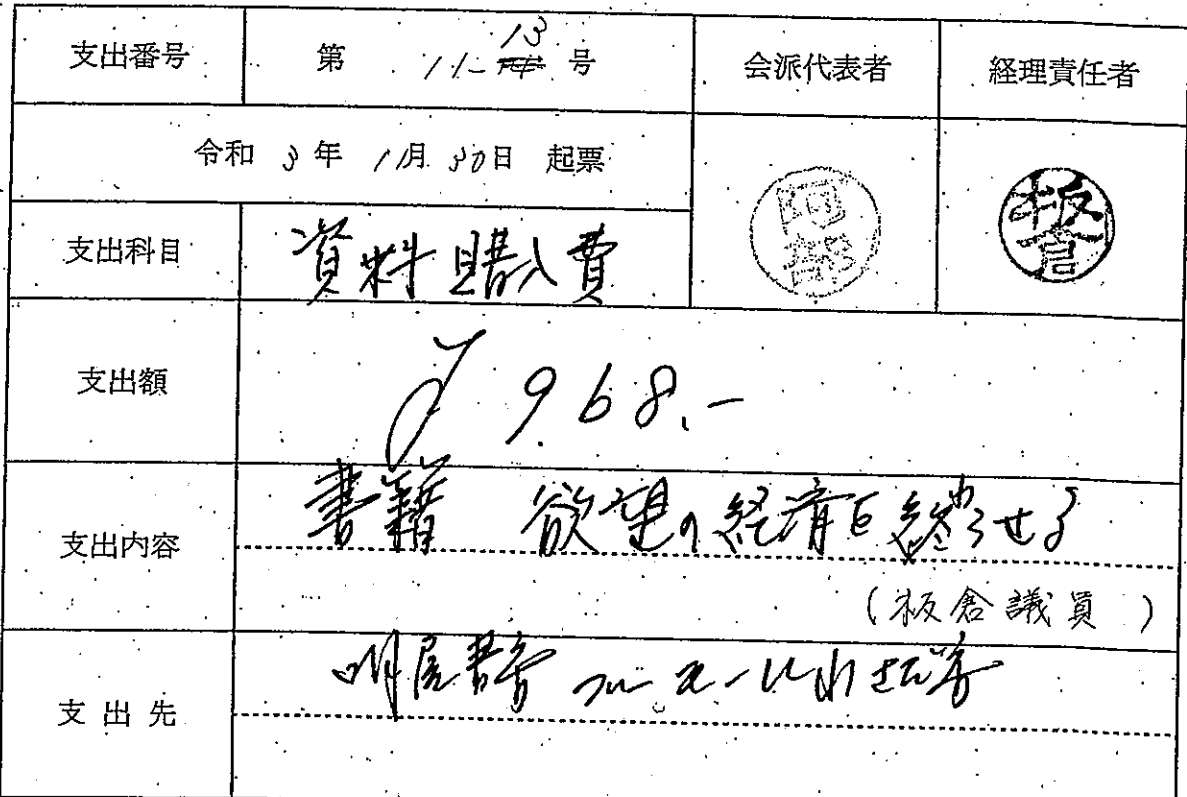 支出番号 第 11-13 号 会派代表者 経理責任者
令和 3年 11月 30日 起票
阿部 板倉
支出科目 資料購入費
支出額 968.-
支出内容 書籍 欲望の経済を終わらせる
(板倉議員)
支出先 明屋書店